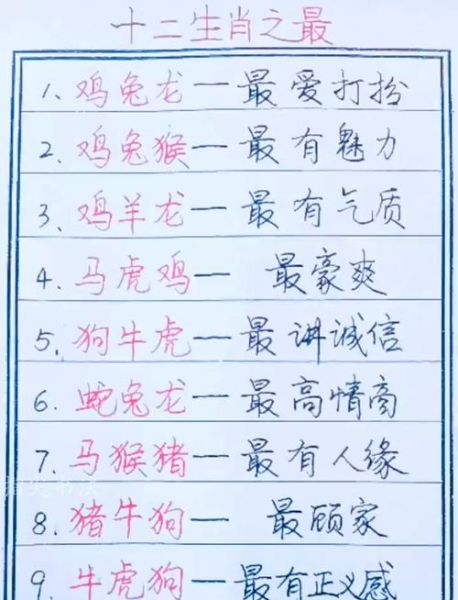 十二生肖之最
1、鸡兔龙一最爱打扮
2、鸡兔猴一最有魅力
3、鸡羊龙一最有气质
4、马虎鸡一 最豪爽
5、狗牛虎一最讲诚信
6、蛇兔龙一最高情商
7、马猴猪一最有人缘
8、猪牛狗一 最顾家
9、牛虎狗一最有正义感